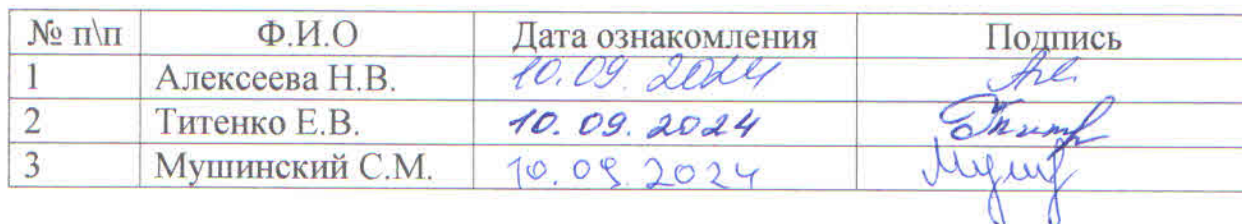 № п\п Ф.И.О Дата ознакомления Подпись
1 Алексеева Н.В. 10.09.2024
2 Титенко Е.В. 10.09.2024
3 Мушинский С.М. 10.09.2024